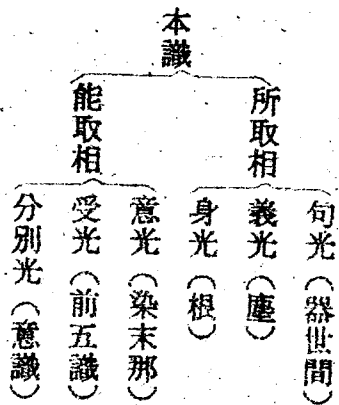 本識
所取相
句光（器世間）
義光（塵）
身光（根）
能取相
意光（染末那）
受光（前五識）
分別光（意識）